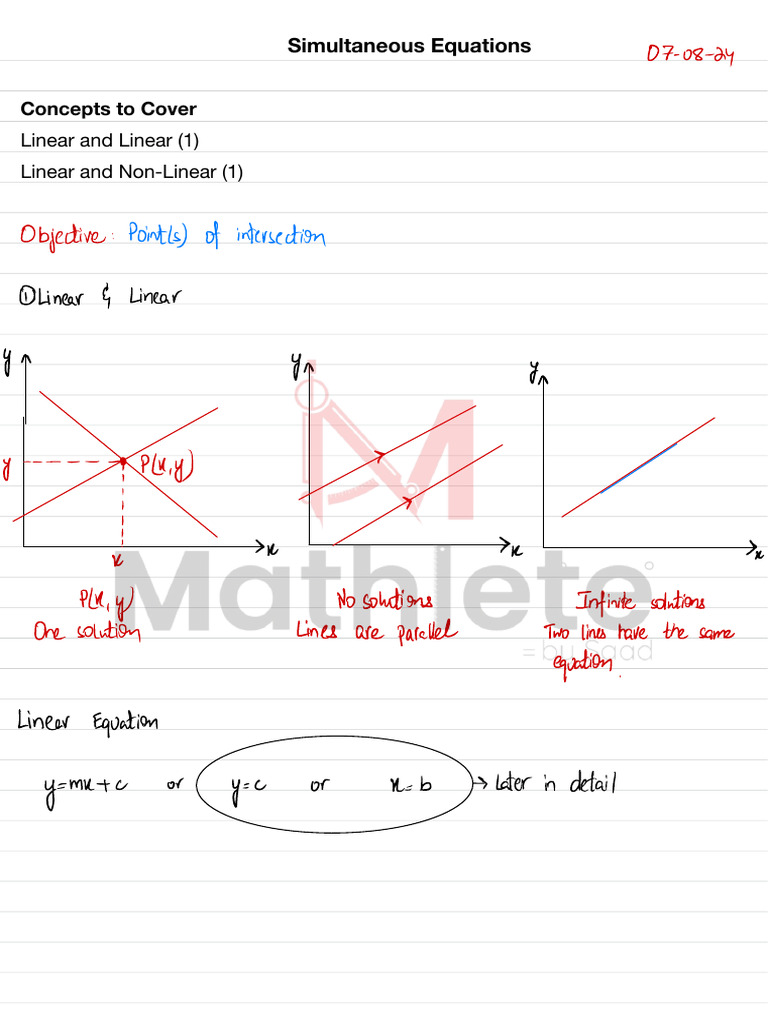 Simultaneous Equations
07-08-24
Concepts to Cover
Linear and Linear (1)
Linear and Non-Linear (1)
Objective: Point(s) of intersection
① Linear & Linear
y y y
y P(x,y)
x x x
x
P(x,y) No solutions Infinite solutions
One solution Lines are parallel Two lines have the same
equation.
Mathlete
= by Saad
Linear Equation
y=mx+c or y=c or x=b → Later in detail